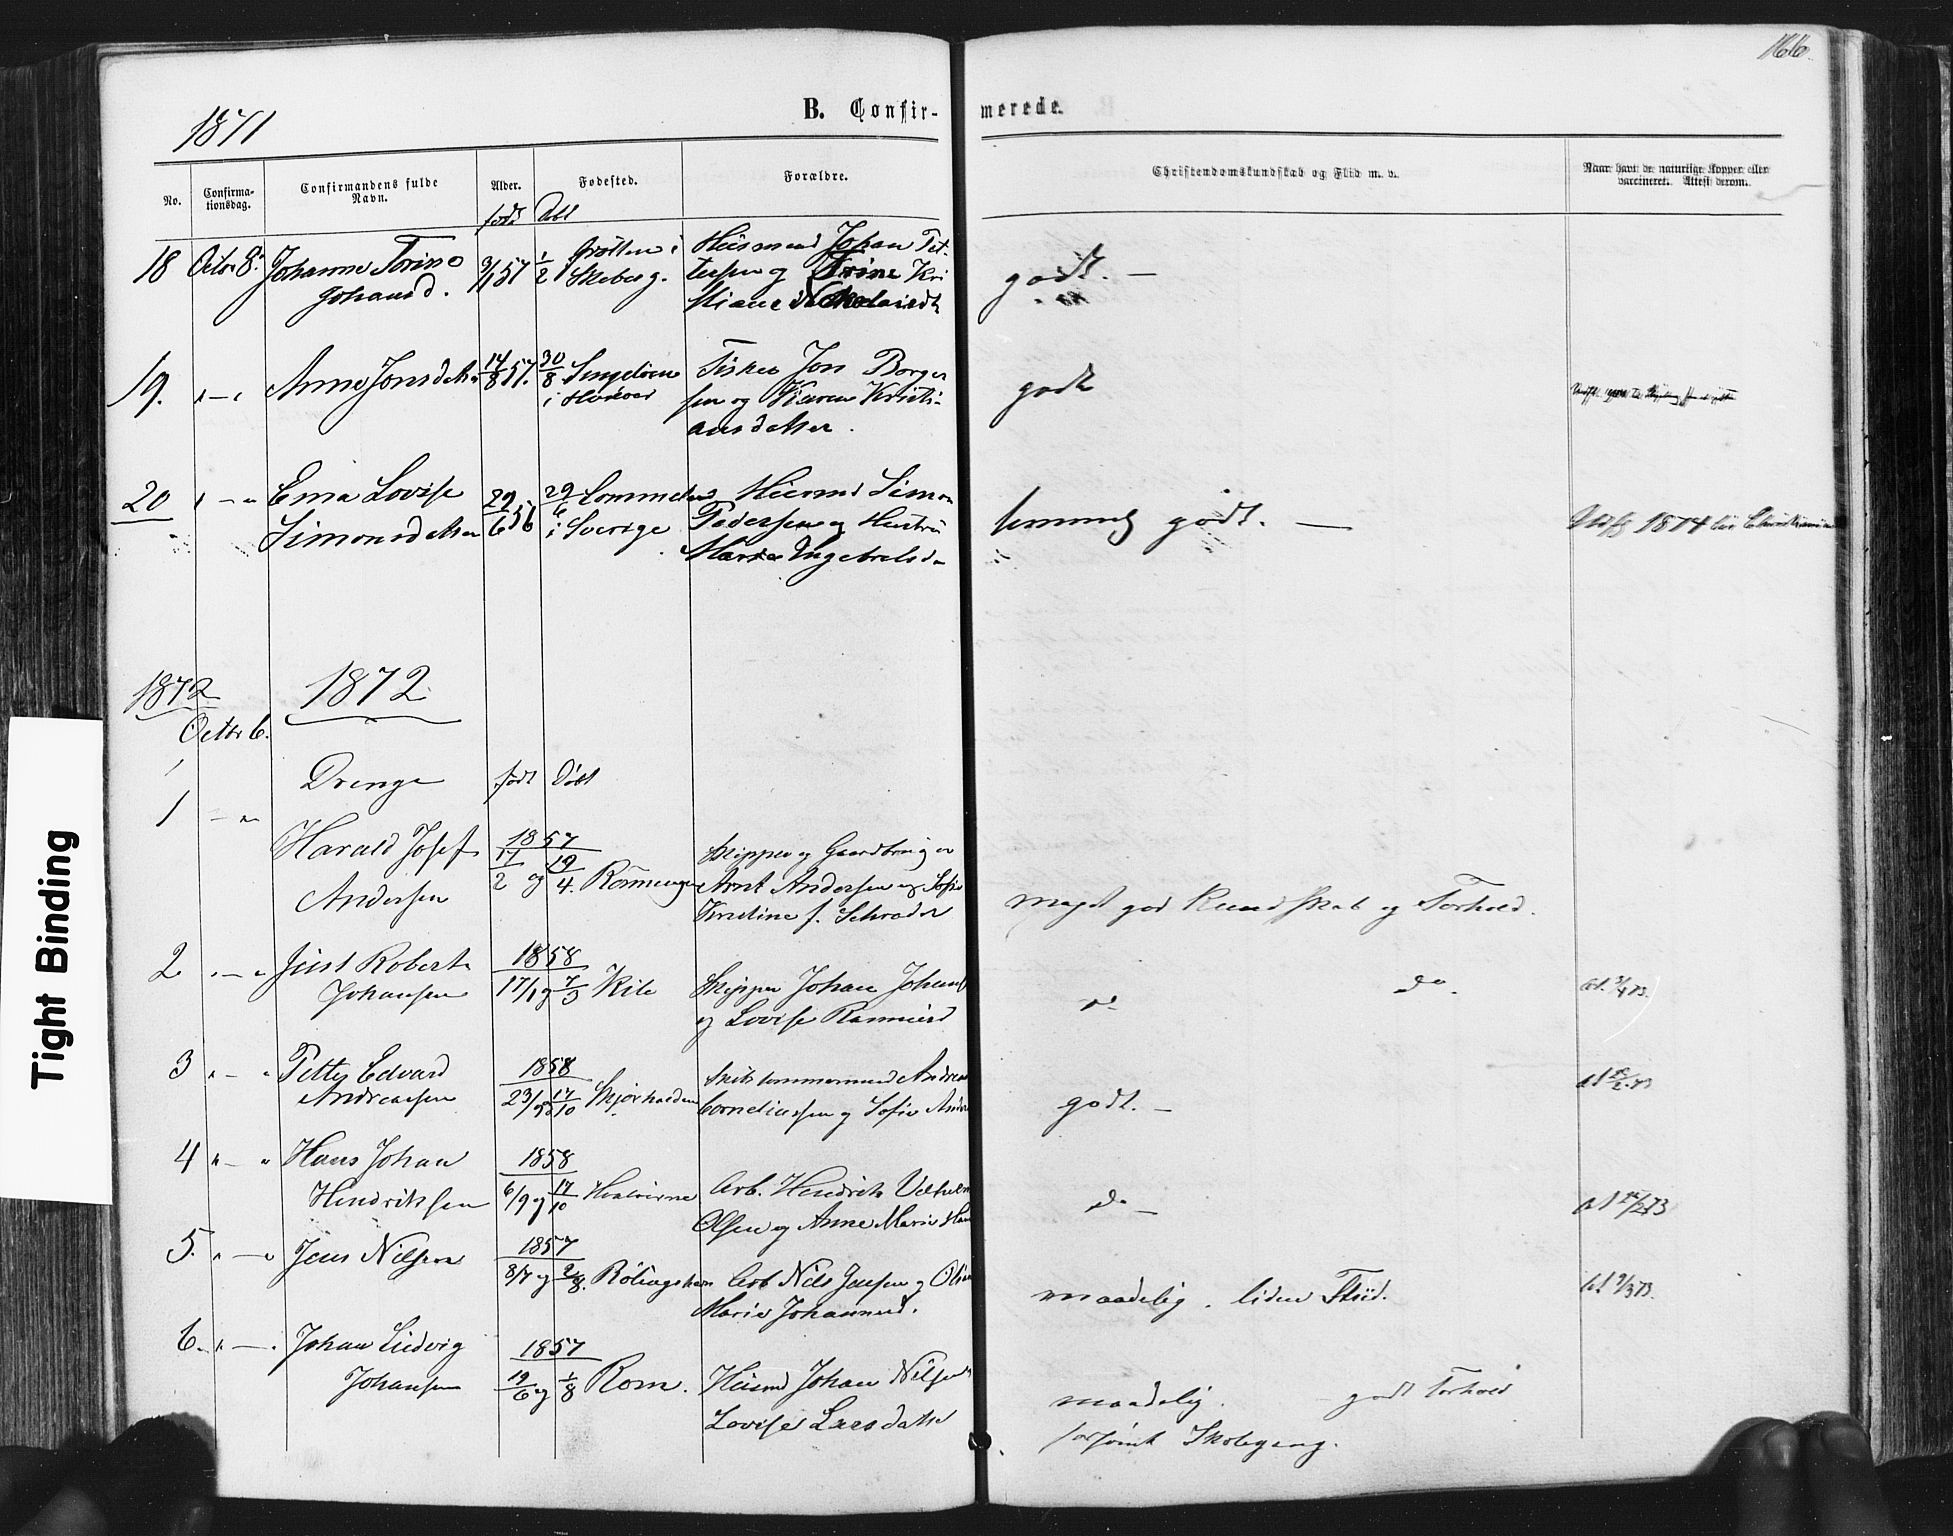 166.
1871
B. Confir-
merede.
No.
Confirma-
tionsdag.
Confirmandens fulde
Navn.
Alder.
Fødested.
Forældre.
Christendomskundskab og Flid m. v.
Naar havt de naturlige Kopper eller
vaccineret. Attest derom.
født Døbt
18 Octbr 8. Johanne
Johansd. 57 1/2 i
Skeberg. Husmand Johan Pet-
tersen og Trine Kri
stiane
godt. —
19. " — " Anne Jonsdatter 14/8 57. 30/8 Singeløen
i Hvaler Fisker Jon Borger
sen og Karen Kristi-
ansdatter.
godt
20 " — " Ema Lovise
Simonsdatter 29/6 56 29/6
i Sverige Husmd Simon
Pedersen og Hustru
Maria Ingebretsd
temmelig godt. —
Udfl 1874 til Christiania
1872
Octbr 6.
1872
Drenge født Døbt
1 — "
Harald Josef
Andersen
1857
17/2 og 19/4.
Skipper og Gaardbruger
Arnt Andersen og Sofie
Kristine f. Schrøder
meget god Kundskab og Forhold.
2 " — " Just Robert
Johansen
1858
17/1 og 7/3 Kile
Skipper Johan Johans
og Lovise
do do.
at. 3/4 73.
3 " — " Petter Edvard
Andreassen
1858
23/9 17/10 Skjærhalden
Skibstømmermand Andreas
Corneliussen og Sofie Andr
godt. —
4 " — " Hans Johan
Hendriksen
1858
6/9 og 17/10
Arb. Hendrik Vilhelm
Olsen og Anne Marie Han
do —
5. " — " Jens Nilsen
1857
8/7 og 2/8.
Arb Nils Jensen og Olin
Marie Johannesd.
maadelig. liden Flid.
at 9/3 73.
6. " — " Johan Ludvig
Johansen
1857
19/6 og 1/8 Rom.
Husmd Johan Nilsen
Lovise Larsdatter
maadelig. — godt Forhold
forsømt Skolegang.
Tight Binding